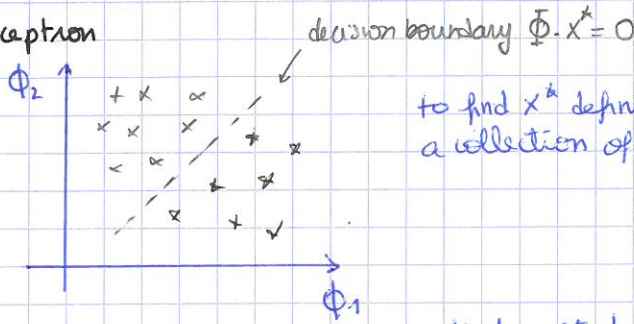 ceptron
decision boundary Φ. x* = 0
Φ2
to find x* defin
a collection of
Φ1